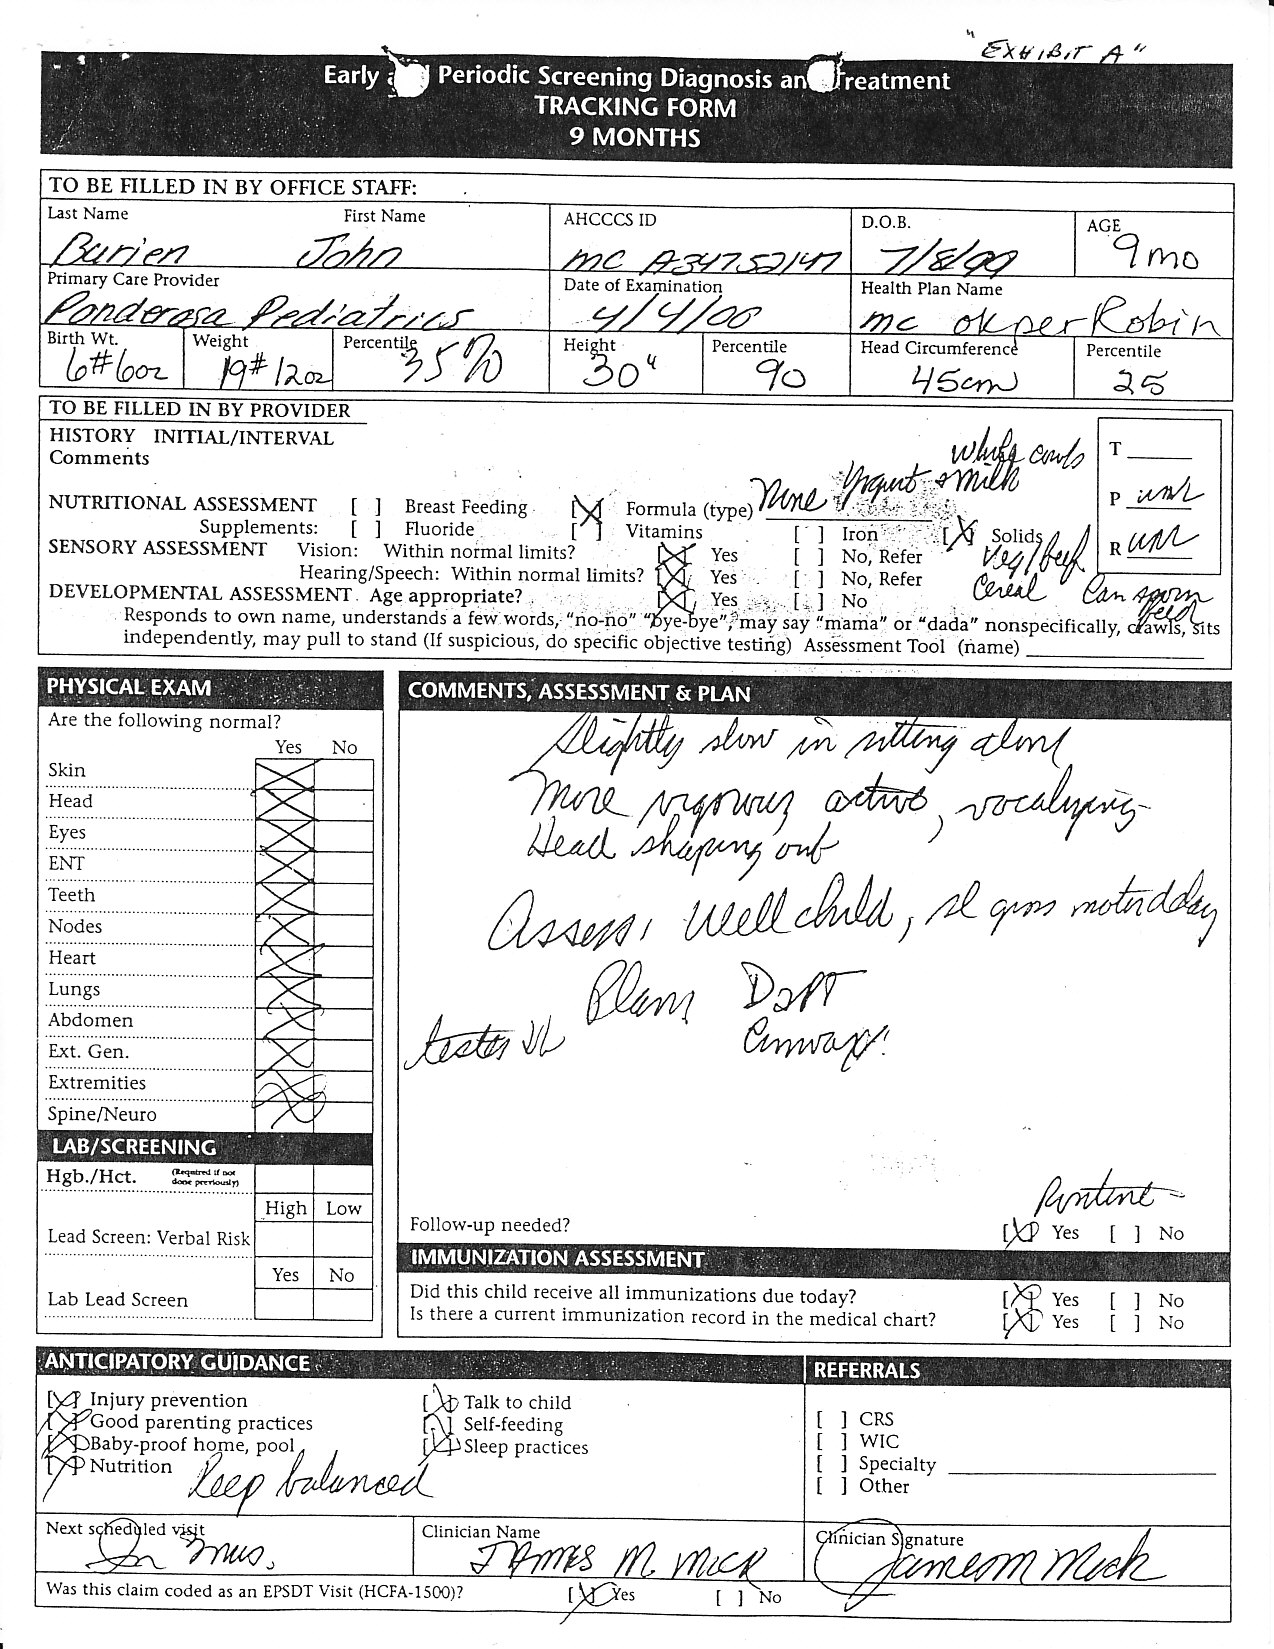 "EXHIBIT A"
Early Periodic Screening Diagnosis an Treatment
TRACKING FORM
9 MONTHS
TO BE FILLED IN BY OFFICE STAFF:
Last Name First Name AHCCCS ID D.O.B. AGE
Burien John MC A34752147 7/8/99 9mo
Primary Care Provider Date of Examination Health Plan Name
Ponderosa Pediatrics 4/4/00 mc ok per Robin
Birth Wt. Weight Percentile Height Percentile Head Circumference Percentile
6#6oz 19#12oz 35% 30" 90 45cm 25
TO BE FILLED IN BY PROVIDER
HISTORY INITIAL/INTERVAL
Comments
whife cows
T
NUTRITIONAL ASSESSMENT [ ] Breast Feeding [X] Formula (type) None Yogurt + milk P
Supplements: [ ] Fluoride [ ] Vitamins [ ] Iron [X] Solids
Veg/beef
Cereal
SENSORY ASSESSMENT Vision: Within normal limits? [X] Yes [ ] No, Refer R
Hearing/Speech: Within normal limits? [X] Yes [ ] No, Refer
DEVELOPMENTAL ASSESSMENT. Age appropriate? [X] Yes [ ] No Can spoon feed
Responds to own name, understands a few words, "no-no" "bye-bye", may say "mama" or "dada" nonspecifically, crawls, sits
independently, may pull to stand (If suspicious, do specific objective testing) Assessment Tool (name)
PHYSICAL EXAM
Are the following normal?
Yes No
Skin
Head
Eyes
ENT
Teeth
Nodes
Heart
Lungs
Abdomen
Ext. Gen.
Extremities
Spine/Neuro
LAB/SCREENING
Hgb./Hct. (Required if not done previously)
High Low
Lead Screen: Verbal Risk
Yes No
Lab Lead Screen
COMMENTS, ASSESSMENT & PLAN
Slightly slow in sitting alone
More vigorous, active, vocalizing
Head shaping out
Assess: Well child, sl gross motor delay
Plan DaPT
testes
Routine
Follow-up needed? [X] Yes [ ] No
IMMUNIZATION ASSESSMENT
Did this child receive all immunizations due today? [X] Yes [ ] No
Is there a current immunization record in the medical chart? [X] Yes [ ] No
ANTICIPATORY GUIDANCE
[X] Injury prevention [X] Talk to child
[X] Good parenting practices [X] Self-feeding
[X] Baby-proof home, pool [X] Sleep practices
[X] Nutrition Keep balanced
REFERRALS
[ ] CRS
[ ] WIC
[ ] Specialty
[ ] Other
Next scheduled visit Clinician Name Clinician Signature
In 3mos. JAMES M. MICK James M Mick
Was this claim coded as an EPSDT Visit (HCFA-1500)? [X] Yes [ ] No